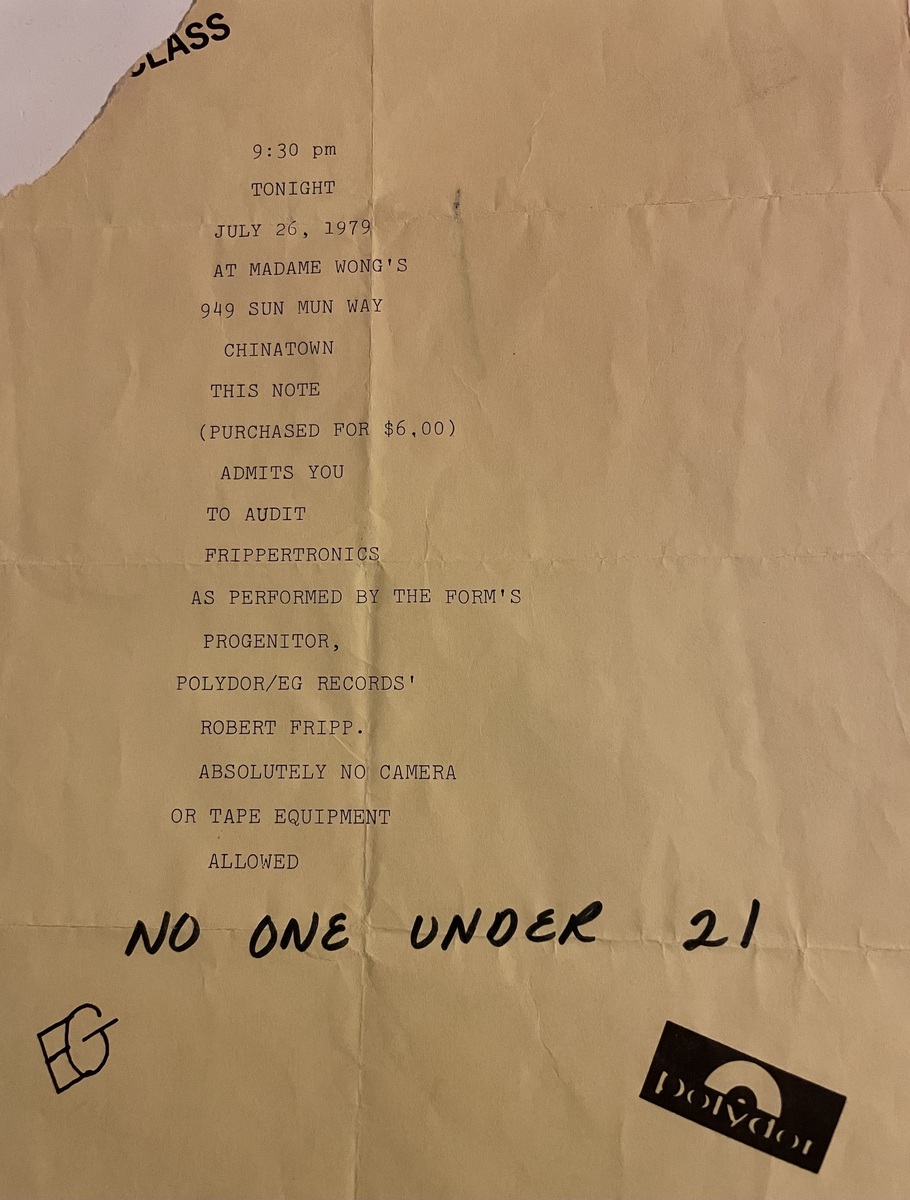 CLASS
9:30 pm
TONIGHT
JULY 26, 1979
AT MADAME WONG'S
949 SUN MUN WAY
CHINATOWN
THIS NOTE
(PURCHASED FOR $6.00)
ADMITS YOU
TO AUDIT
FRIPPERTRONICS
AS PERFORMED BY THE FORM'S
PROGENITOR,
POLYDOR/EG RECORDS'
ROBERT FRIPP.
ABSOLUTELY NO CAMERA
OR TAPE EQUIPMENT
ALLOWED
NO ONE UNDER 21
EG
polydor